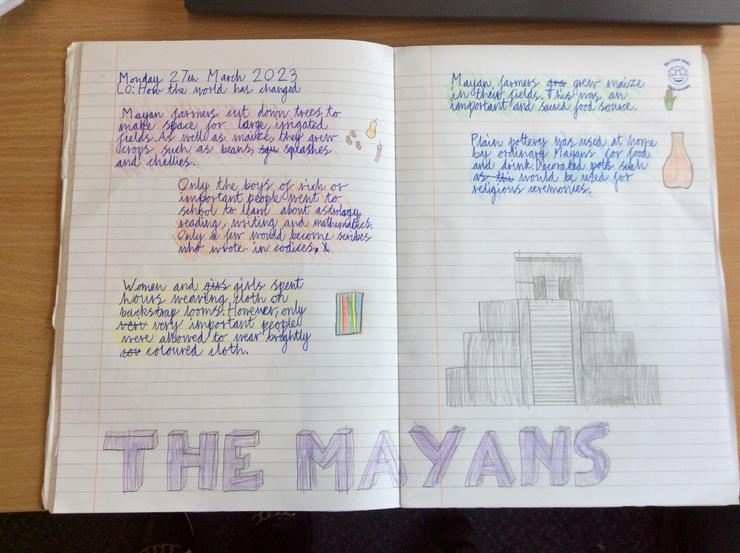 Monday 27th March 2023
LO: How the world has changed
Mayan farmers cut down trees to
make space for large, irrigated
fields. As well as maize, they grew
crops such as beans, squ squashes
and chillies.
Only the boys of rich or
important people went to
school to learn about astrology,
reading, writing and mathematics.
Only a few would become scribes
who wrote in codices.
Women and girls spent
hours weaving cloth on
backstrap looms. However, only
very very important people
were allowed to wear brightly
coloured cloth.
Mayan farmers gro grew maize
in their fields. This was an
important and sacred food source.
Plain pottery was used at home
by ordinary Mayans for food
and drink. Decorated pots such
as this would be used for
religious ceremonies.
THE MAYANS